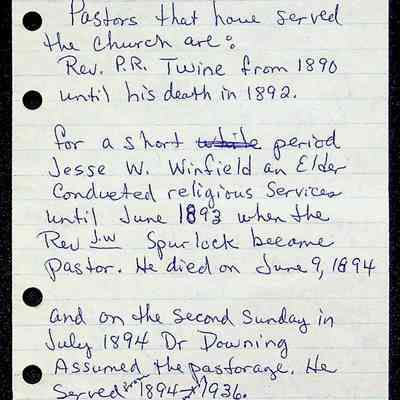 Pastors that have served
the church are:
Rev. P.R. Twine from 1890
until his death in 1892.
for a short while period
Jesse W. Winfield an Elder
Conducted religious Services
until June 1893 when the
Rev J.W Spurlock became
pastor. He died on June 9, 1894
and on the second Sunday in
July 1894 Dr Downing
Assumed the pastorage. He
Served 1894 1936.